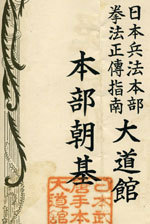 日本兵法本部
拳法正傳指南
大道館
本部朝基
日本武
唐手本
大道館